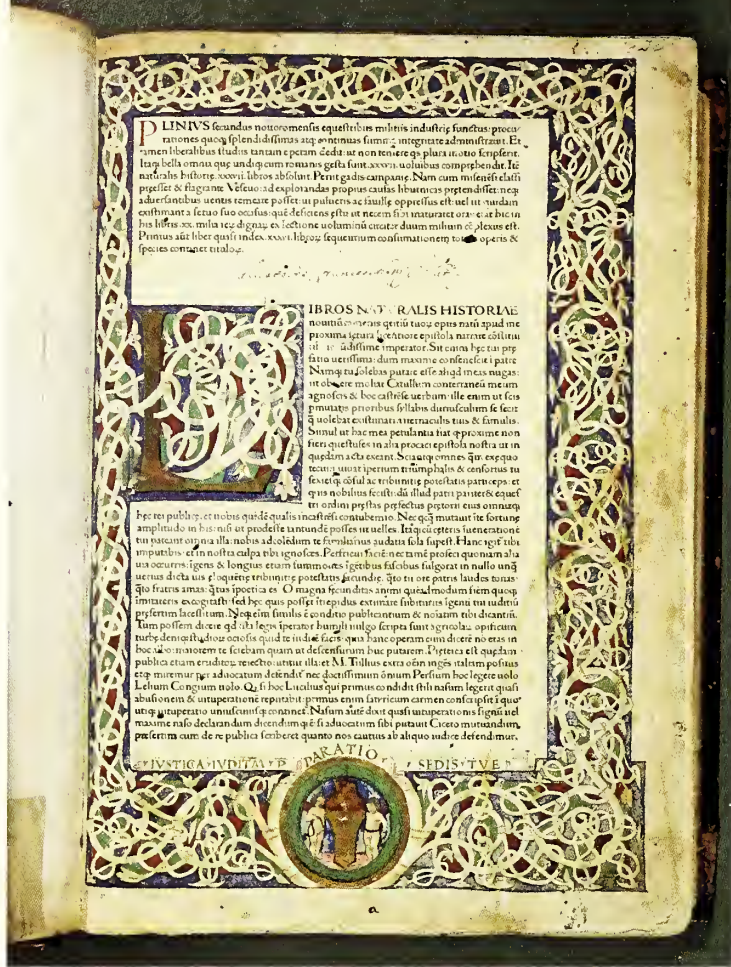 PLINIVS secundus nouocomensis equestribus militiis industrię functus: procu-
rationes quoq; splendidissimas atq; continuas summa integritate administrauit. Et
tamen liberalibus studiis tantam operam dedit: ut non temere qs plura in otio scripserit.
Itaq; bella omnia quę undiq; cum romanis gesta sunt .xxvii. uoluibus comprehendit. Itē
naturalis historię .xxxvii. libros absoluit. Periit gadis campanię. Nam cum misenēsi classi
pręesset & flagrante Veseuo: ad explorandas propius causas liburnicas prętendisset: neq;
aduersantibus uentis remeare posset: ui pulueris ac fauillę oppressus est: uel ut quidam
existimant a seruo suo occisus: quē deficiens ęstu ut necem sibi maturaret orauerat hic in
his libris .xx. milia reȝ dignaȝ ex lectione uoluminū circiter duum milium cōplexus est.
Primus aūt liber quasi index .xxxvi. libroȝ sequentium consumationem totius operis &
species continet tituloȝ.
LIBROS NATVRALIS HISTORIAE
nouitiū camenis qritiū tuoȝ opus natū apud me
proxima fętura licentiore epistola narrare cōstitui
tibi iocūdissime imperator. Sit enim hęc tui prę
fatio uerissima: dum maxime consenescit i patre
Namq; tu solebas putare esse aliqd meas nugas:
ut obicere moliar Catullum conterraneū meum
agnoscis & hoc castrēse uerbum: ille enim ut scis
pmutatis prioribus syllabis duriusculum se fecit
q̄ uolebat existimari a uernaculis tuis & famulis.
Simul ut hac mea petulantia fiat qʳ proxime non
fieri questus es in alia procaci epistola nostra ut in
quędam acta exeant. Sciantq; omnes q̄m ex ęquo
tecum uiuat iperium triumphalis & censorius tu
sexiesq; cōsul ac tribunitię potestatis particeps: et
qʳ iis nobilius fecisti: dū illud patri pariter & equest
tri ordini pręstas pręfectus pretorii eius omniaq;
hęc rei publicę: et nobis quidē qualis in castrēsi contubernio. Nec qcq̄ mutauit ī te fortunę
amplitudo in his: nisi ut prodesse tantundē posses ut uelles. Itaq; cū cęteris in ueneratiōe
tui pateant omnia illa: nobis ad colēdum te familiarius audatia sola supest. Hanc igit tibi
imputabis: et in nostra culpa tibi ignosces. Perfricui faciē: nec tamē profeci quoniam alia
uia occurris: īgens & longius etiam summoues īgētibus fascibus fulgorat in nullo unq̄
uerius dicta uis eloquētię tribunitię potestatis facundię. q̄to tu ore patris laudes tonas:
q̄to fratris amas: q̄tus ī poetica es O magna fęcunditas animi quēadmodum fr̄em quoq;
imitareris excogitasti: sed hęc quis posset itrepidus extimare subiturus īgenii tui iuditiū
pręsertim lacessitum. Neq; eīm similis ē conditio publicantium & noiatim tibi dicantiū.
Tum possem dicere qd ista legis īperator humili uulgo scripta sunt agricolaȝ opificum
turbę deniq; studioȝ ociosis quid te iudicē facis: quia hanc operam cum dicerē no etas in
hoc albo: maiorem te sciebam quam ut descensurum huc putarem. Pręterea est quędam
publica etiam eruditoȝ reiectio: utitur illa: et M. Tullius extra oēm ingēii aleam positus
etq; miremur per aduocatum defendit nec doctissimum ōnium Persium hoc legere uolo
Lelium Congium uolo. Q̊ si hoc Lucilius qui primus condidit stili nasum legerit quasi
abusionem & uituperationē reputabit: primus enim satyricum carmen conscipsit ī quo
utiq; uituperatio uniuscuiusq; continet. Nasum autē dixit quasi uituperationis signū uel
maxime naso declarandum dicendumq; ē si aduocatum sibi putauit Cicero mutuandum,
pręsertim cum de re publica scriberet quanto nos cautius ab aliquo iudice defendimur.
IVSTICA·IVDITIVM P
PARATIO
SEDIS·TVE
a